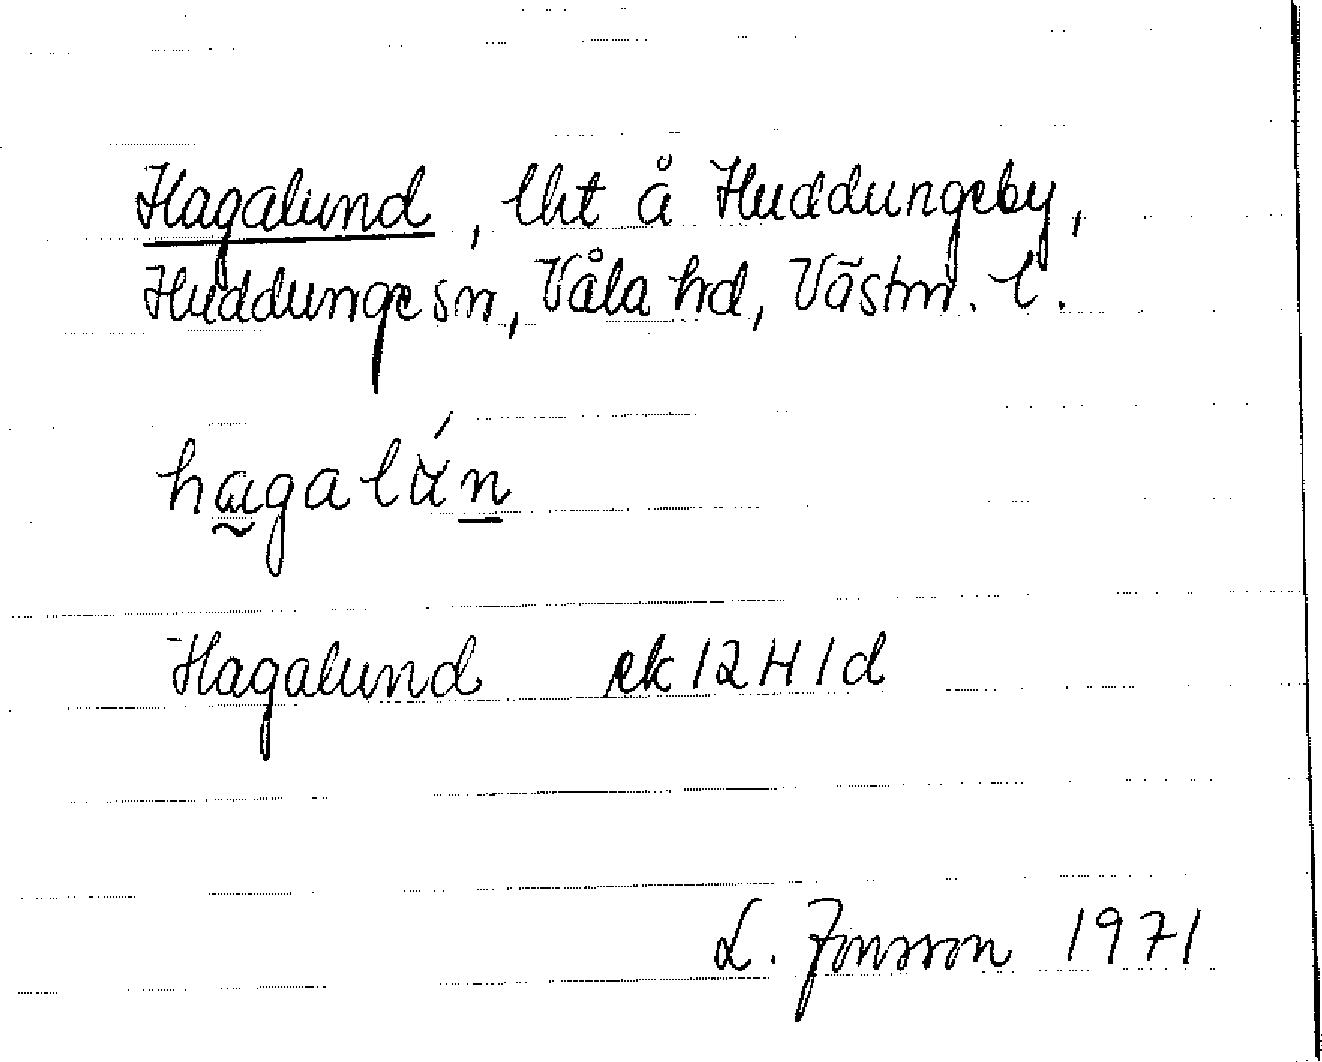 Hagalund, lht å Huddungeby,
Huddunge sn, Våla hd, Västm. l.
hagalún
Hagalund ek 12H1d
L. Jonsson 1971